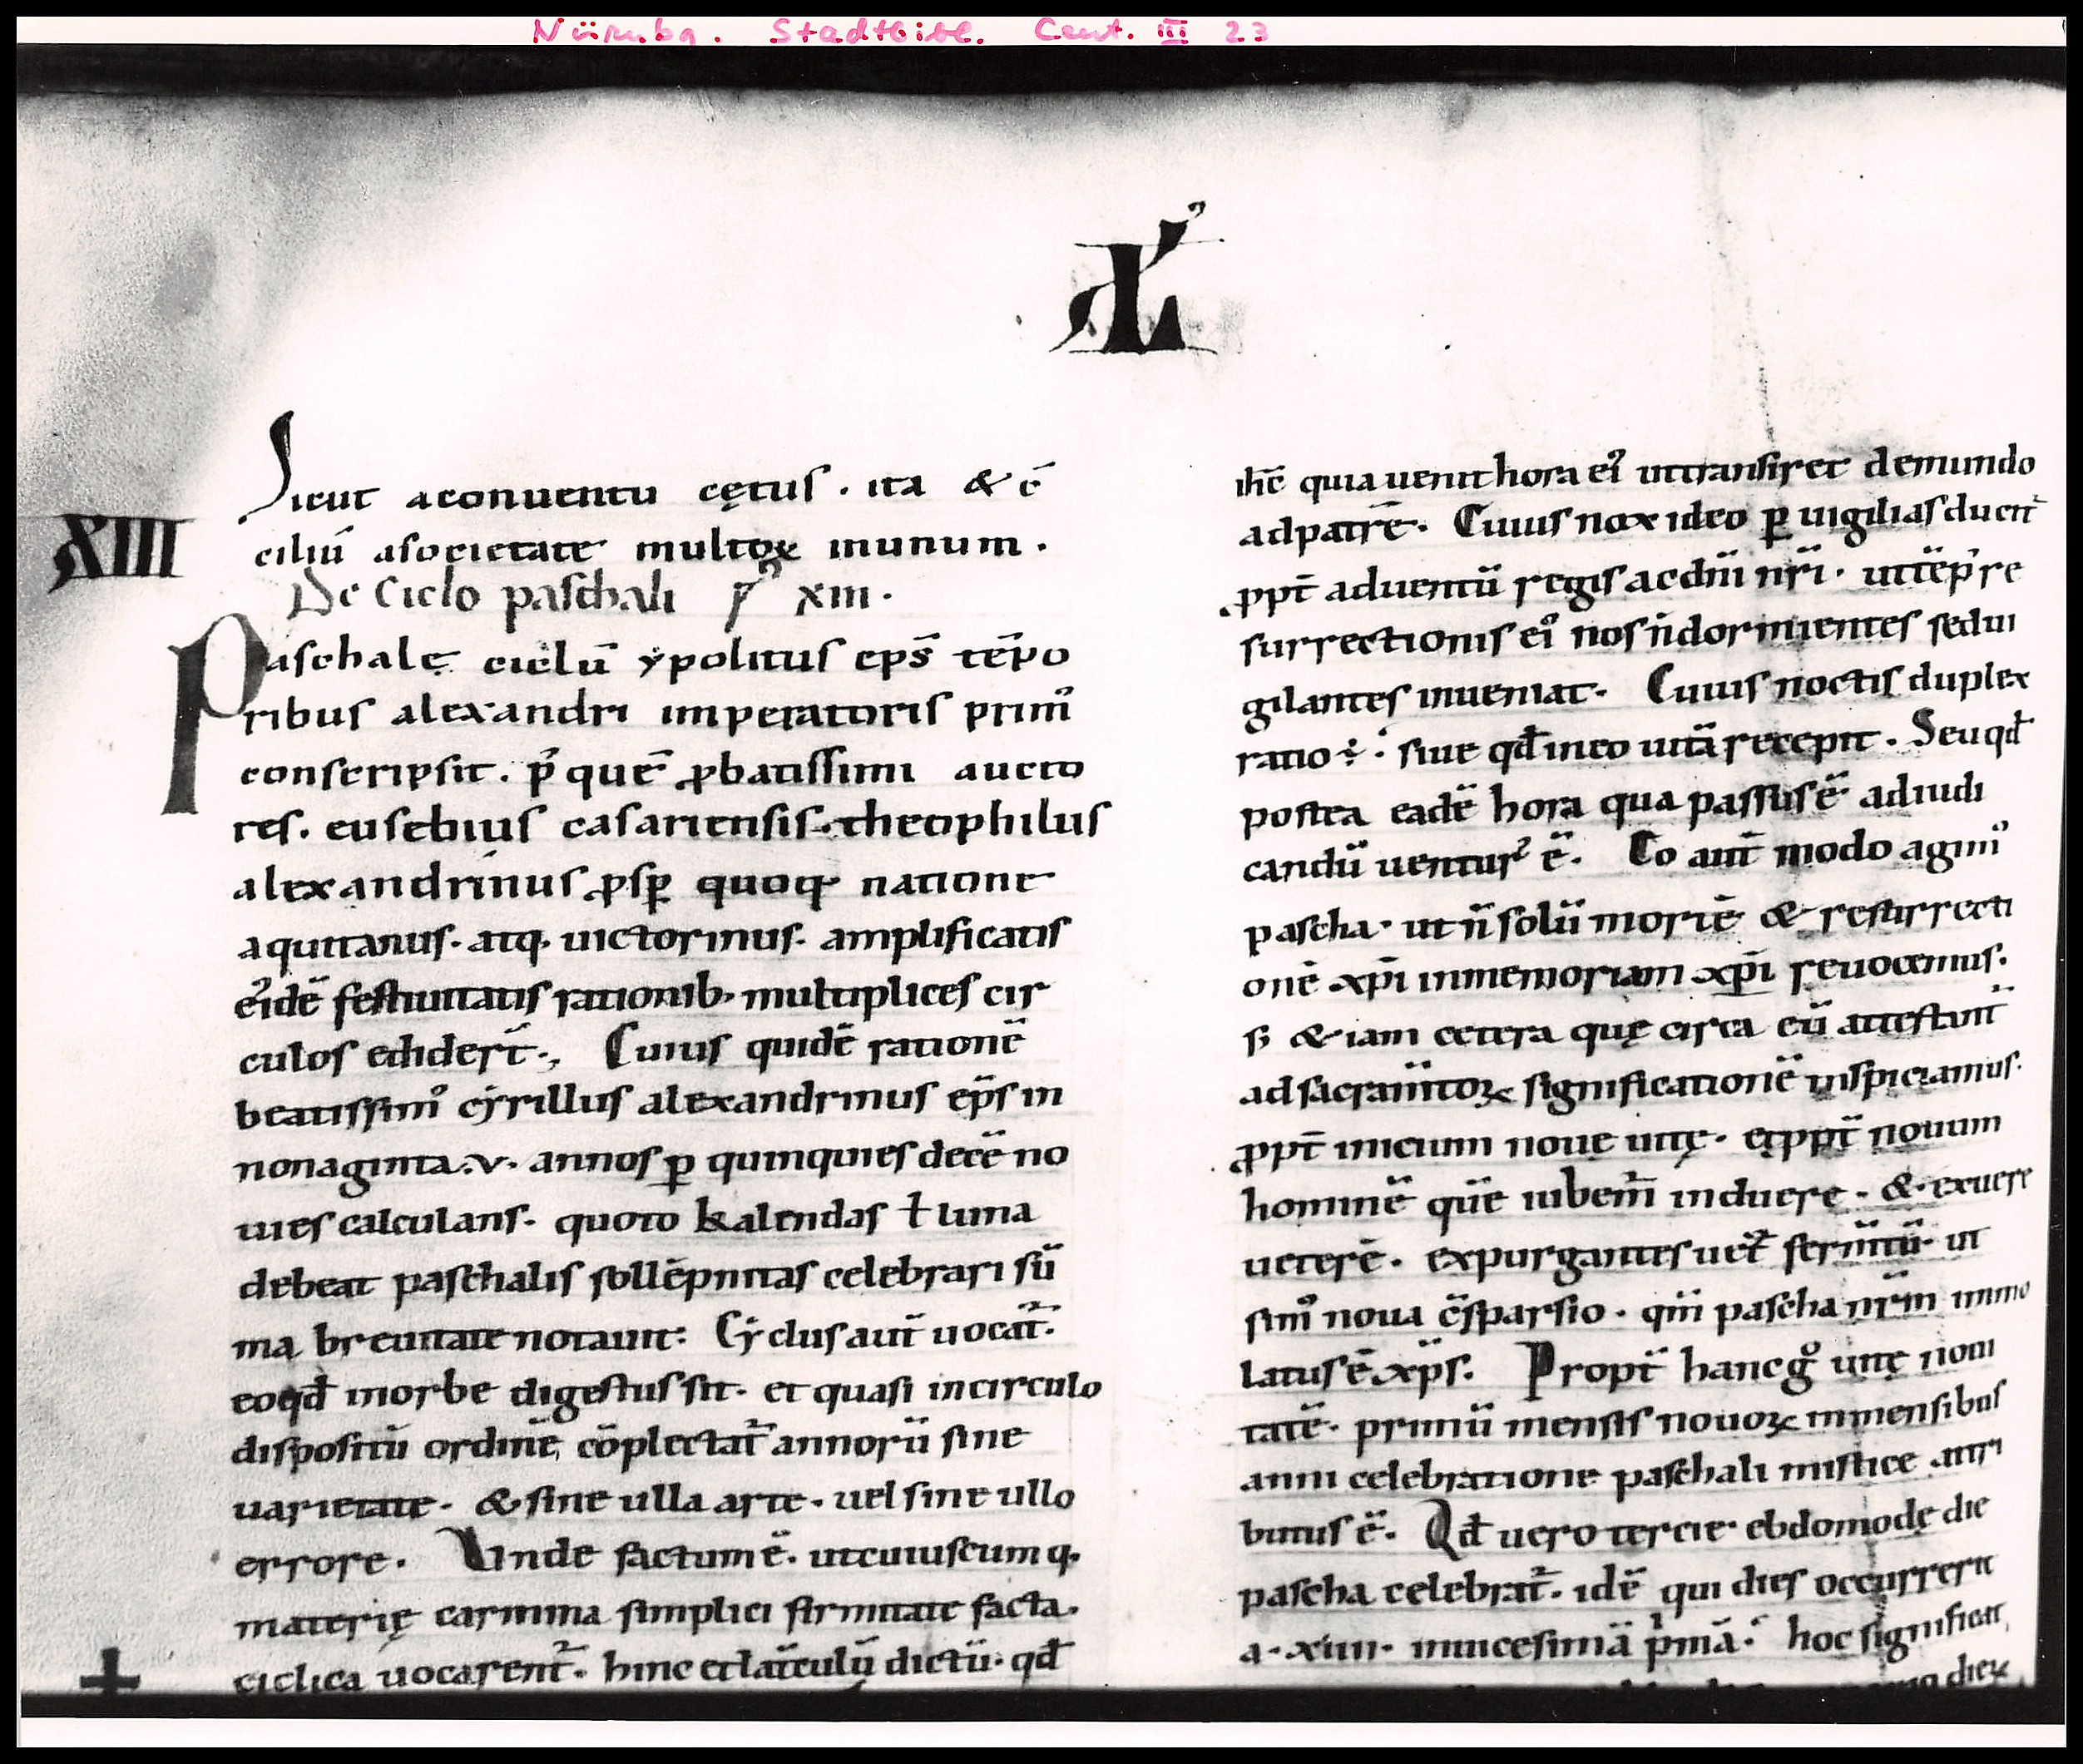 Nürnbg. Stadtbibl. Cent. III 23
Sicut aconuentu cętus. ita & c̄
XIII
ciliū asocietate multoꝝ inunum.
De Ciclo paschali xiii.
Paschalę ciclū ypolitus ep̄s tēpo
ribus alexandri imperatoris primꝰ
conscripsit. p̓ quē ꝓbatissimi aucto
res. eusebius casariensis. theophilus
alexandrinus ꝓsꝑ quoq natione
aquitanus. atq. uictorinus. amplificatis
eꝰidē festiuitatis rationib. multiplices cir
culos edidert̄. Cuius quidē rationē
beatissimꝰ cẏrillus alexandrinus ep̄s in
nonaginta.v. annos ꝑ quinquies decē no
uies calculans. quoto kalendas ł luna
debeat paschalis sollēpnitas celebrari sū
ma breuitate notauit: Cẏclus aut̄ uocat̄.
eoqđ inorbe digestus sit. et quasi incirculo
dispositū ordinē cōplectat̄ annorū sine
uarietate. & sine ulla arte. uel sine ullo
errore. Unde factum ē. utcuiuscumq.
materię carmina simplici firmitate facta.
ciclica uocarent̄. hinc et lat̄culū dictū. qđ
ihc̄ quia uenit hora eiꝰ uttransiret demundo
adpatrē. Cuius nox ideo ꝑ uigilias ducit̄
ꝓpt̄ aduentū regis ac dn̄i nr̄i. uttēp̓re
surrectionis eiꝰ nos n̄ dormientes sedui
gilantes inueniat. Cuius noctis duplex
ratio ÷. siue qđ ineo uitā recepit. Seu qđ
postea eadē hora qua passus ē adiudi
candū uentur̓ ē. Eo aut̄ modo agimꝰ
pascha. ut n̄ solū mortē & resurrecti
onē xp̄i inmemoriam xp̄i reuocemus.
s; & iam cetera quę circa eū attestant̄
ad sacramn̄toꝝ significationē inspiciamus.
ꝓpt̄ inicium nouę uitę. et ꝓpt̄ nouum
hominē quē iubem̄ induere. & exuere
ueterē. expurgantes uet̄ ferm̄tū. ut
simꝰ noua c̄sparsio. qm̄ pascha nr̄m immo
latus ē xp̄s. Propt̄ hanc gͦ uitę noui
tatē. primū mensis nouoꝝ inmensibus
anni celebratione paschali mistice attri
butus ē. Qđ uero tercie ebdomodę die
pascha celebrat̄. idē qui dies occurrerit
a. xiiii. inuicesimā p̓mā. hoc significat,